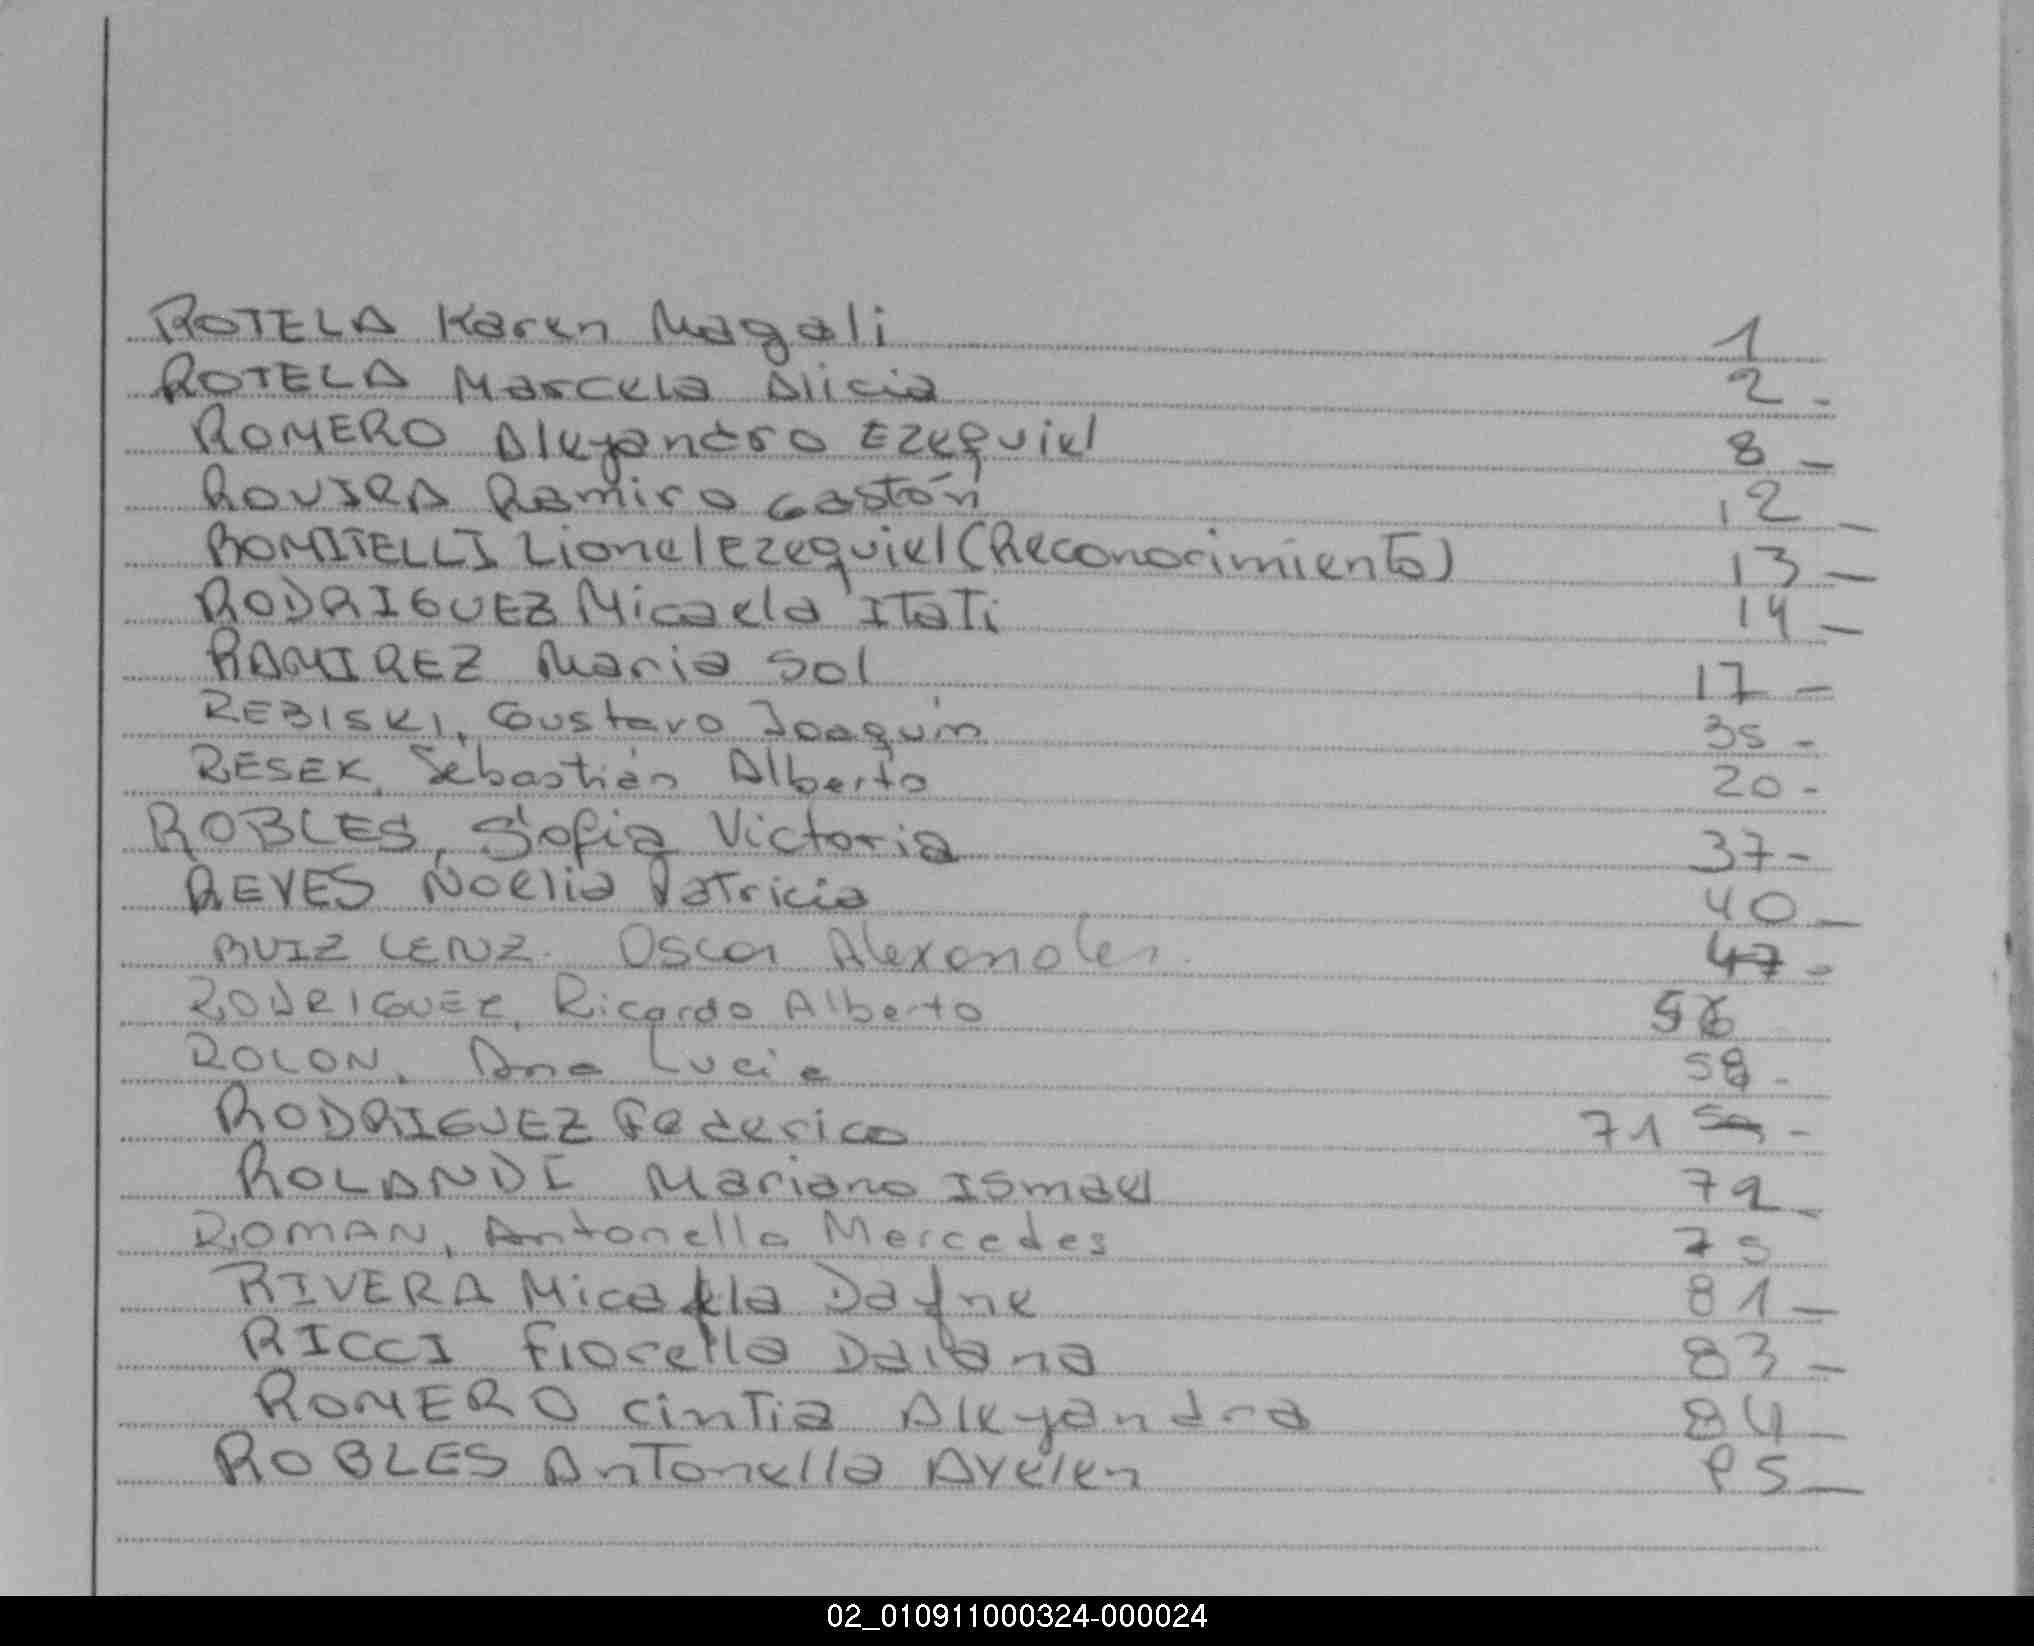 ROTELA Karen Magali 1
ROTELA Marcela Alicia 2 -
ROMERO Alejandro Ezequiel 8 -
ROVIRA Ramiro Gastón 12 -
ROMITELLI Lionel Ezequiel (Reconocimiento) 13 -
RODRIGUEZ Micaela Itati 14 -
RAMIREZ Maria Sol 17 -
REBISKI, Gustavo Joaquín 35 -
RESEK, Sebastián Alberto 20 -
ROBLES, Sofia Victoria 37 -
REYES Noelia Patricia 40 -
RUIZ LENZ. Oscar Alexander. 47 -
RODRIGUEZ, Ricardo Alberto
ROLON, Ana Lucia 58 -
RODRIGUEZ Federico 71 -
ROLANDI Mariano Ismael 72 -
ROMAN, Antonella Mercedes 75
RIVERA Micaela Dafne 81 -
RICCI Fiorella Daiana 83 -
ROMERO Cintia Alejandra 84 -
ROBLES Antonella Ayelen 85 -
02_010911000324-000024